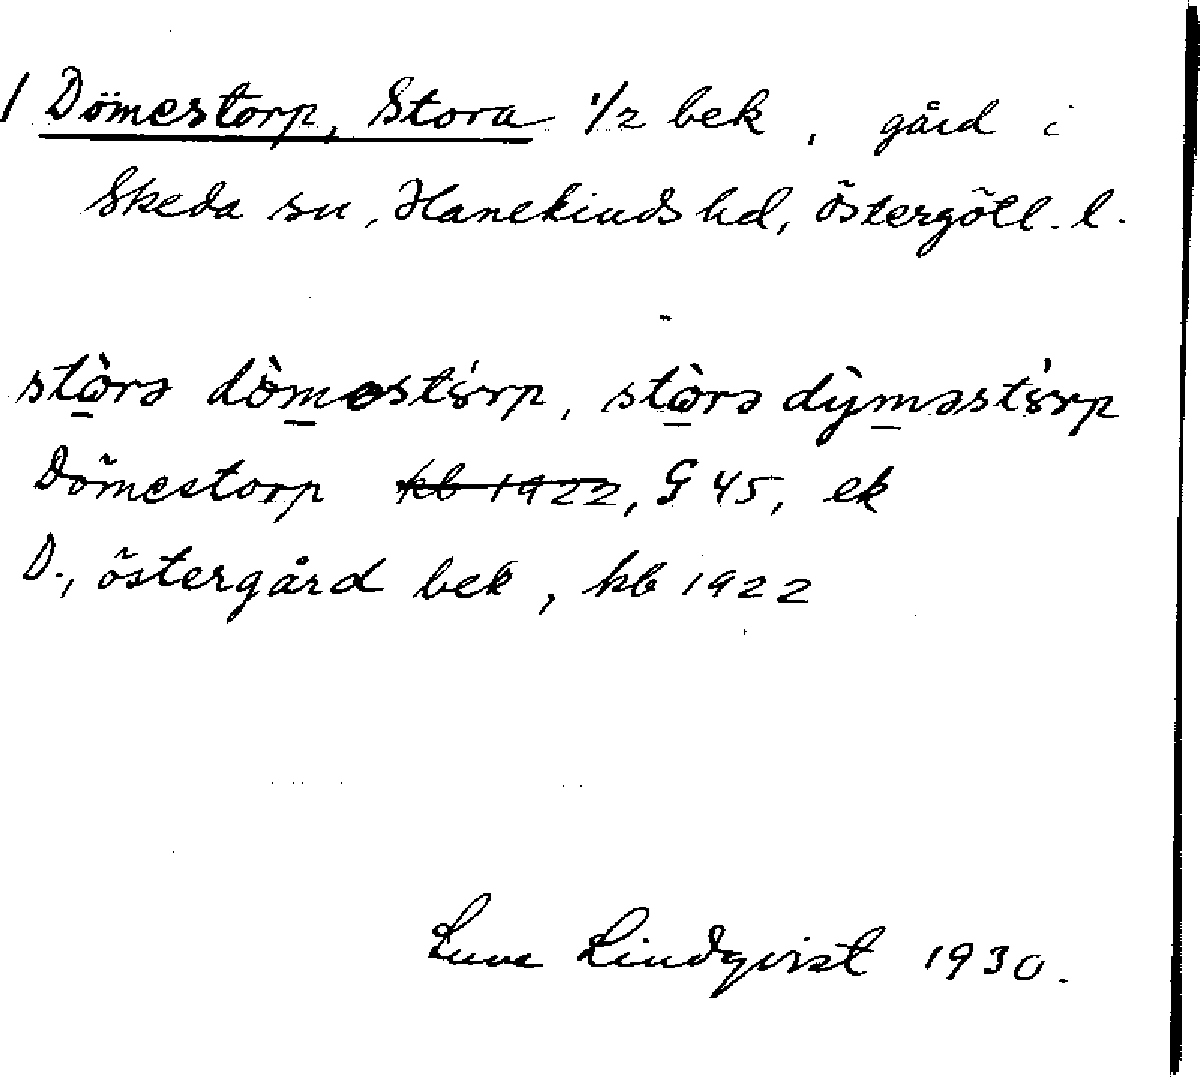 / Dömestorp, Stora 1/2 bek, gård i
Skeda sn, Hanekinds hd, Östergötl. l.
stɷ̀rə dö̀məstə́rp, stɷ̀rə dỳməstə́rp
Dömestorp ~~kb 1922~~, G 45, ek
D., Östergård bek, kb 1922
Lindqvist 1930.